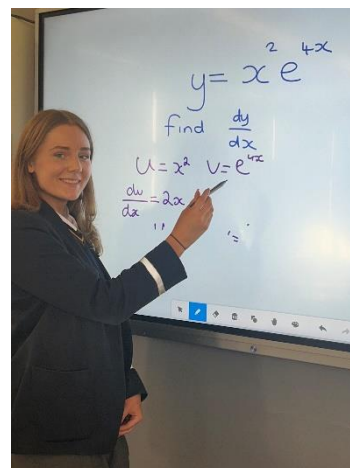 y = x² e⁴ˣ
find dy/dx
u = x² v = e⁴ˣ
du/dx = 2x